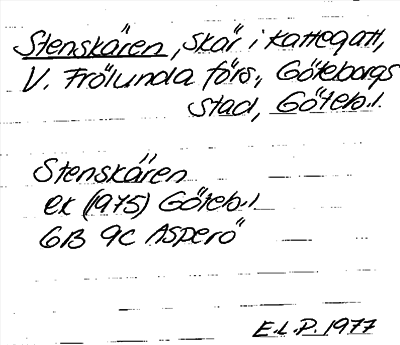 Stenskären, skär i Kattegatt,
V. Frölunda förs., Göteborgs
stad, Göteb.l.
Stenskären
ek (1975) Göteb.l.
6B 9C Asperö
E.L.P. 1977